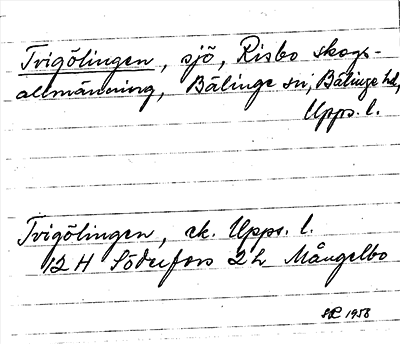 Tvigölingen, sjö, Risbo skogs-
allmänning, Bälinge sn, Bälinge hd,
Upps. l.
Tvigölingen, ek. Upps. l.
12 H Söderfors 2 h Mångelbo
1958